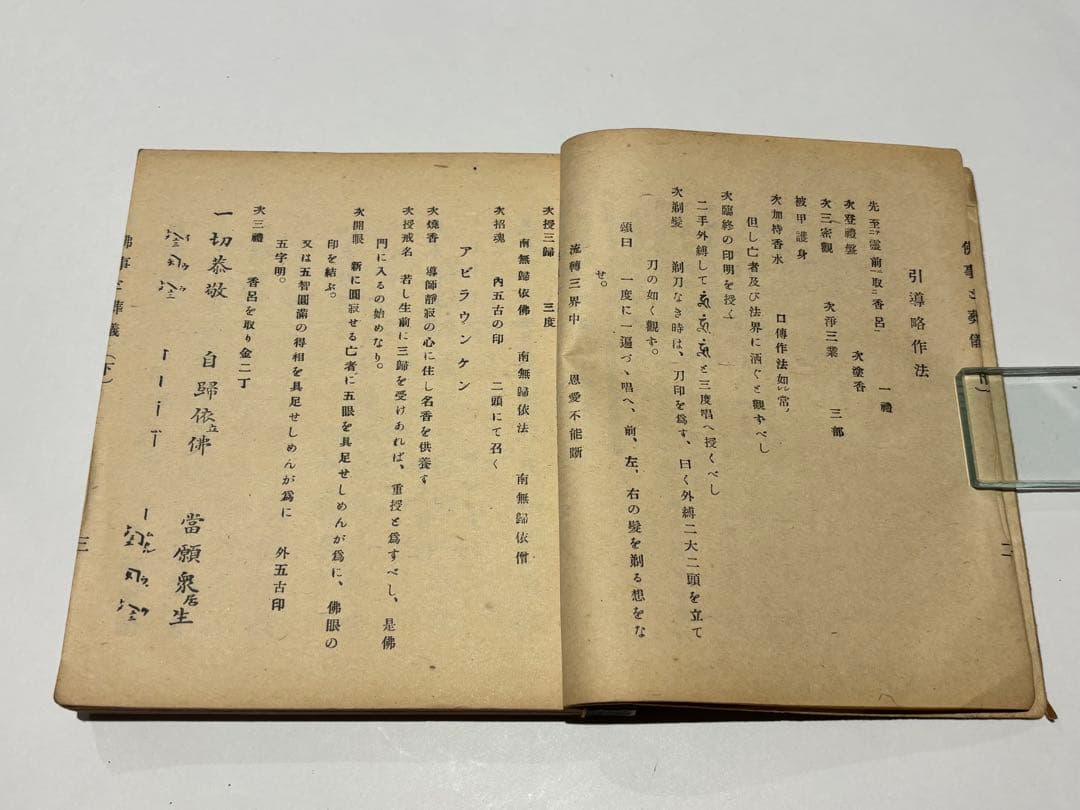 引導略作法
先至靈前取香呂 一禮
次登禮盤 次塗香
次三密觀 次淨三業 三部
被甲護身
次加持香水 口傳作法如常
但し亡者及び法界に洒ぐと觀ずべし
次臨終の印明を授く
二手外縛して と三度唱へ授くべし
次剃髮 剃刀なき時は、刀印を爲す、曰く外縛二大二頭を立て
刀の如く觀ず。
頌曰 一度に一遍づゝ唱へ、前、左、右の髮を剃る想をな
せ。
流轉三界中 恩愛不能斷
二
次授三歸 三度
南無歸依佛 南無歸依法 南無歸依僧
次招魂 內五古の印 二頭にて召く
アビラウンケン
次燒香 導師靜寂の心に住し名香を供養す
次授戒名 若し生前に三歸を受けあれば、重授と爲すべし、是佛
門に入るの始めなり。
次開眼 新に圓寂せる亡者に五眼を具足せしめんが爲に、佛眼の
印を結ぶ。
又は五智圓滿の得相を具足せしめんが爲に 外五古印
五字明。
次三禮 香呂を取り金二丁
一切恭敬 自歸依佛 當願衆生
佛事と葬義(下)
三